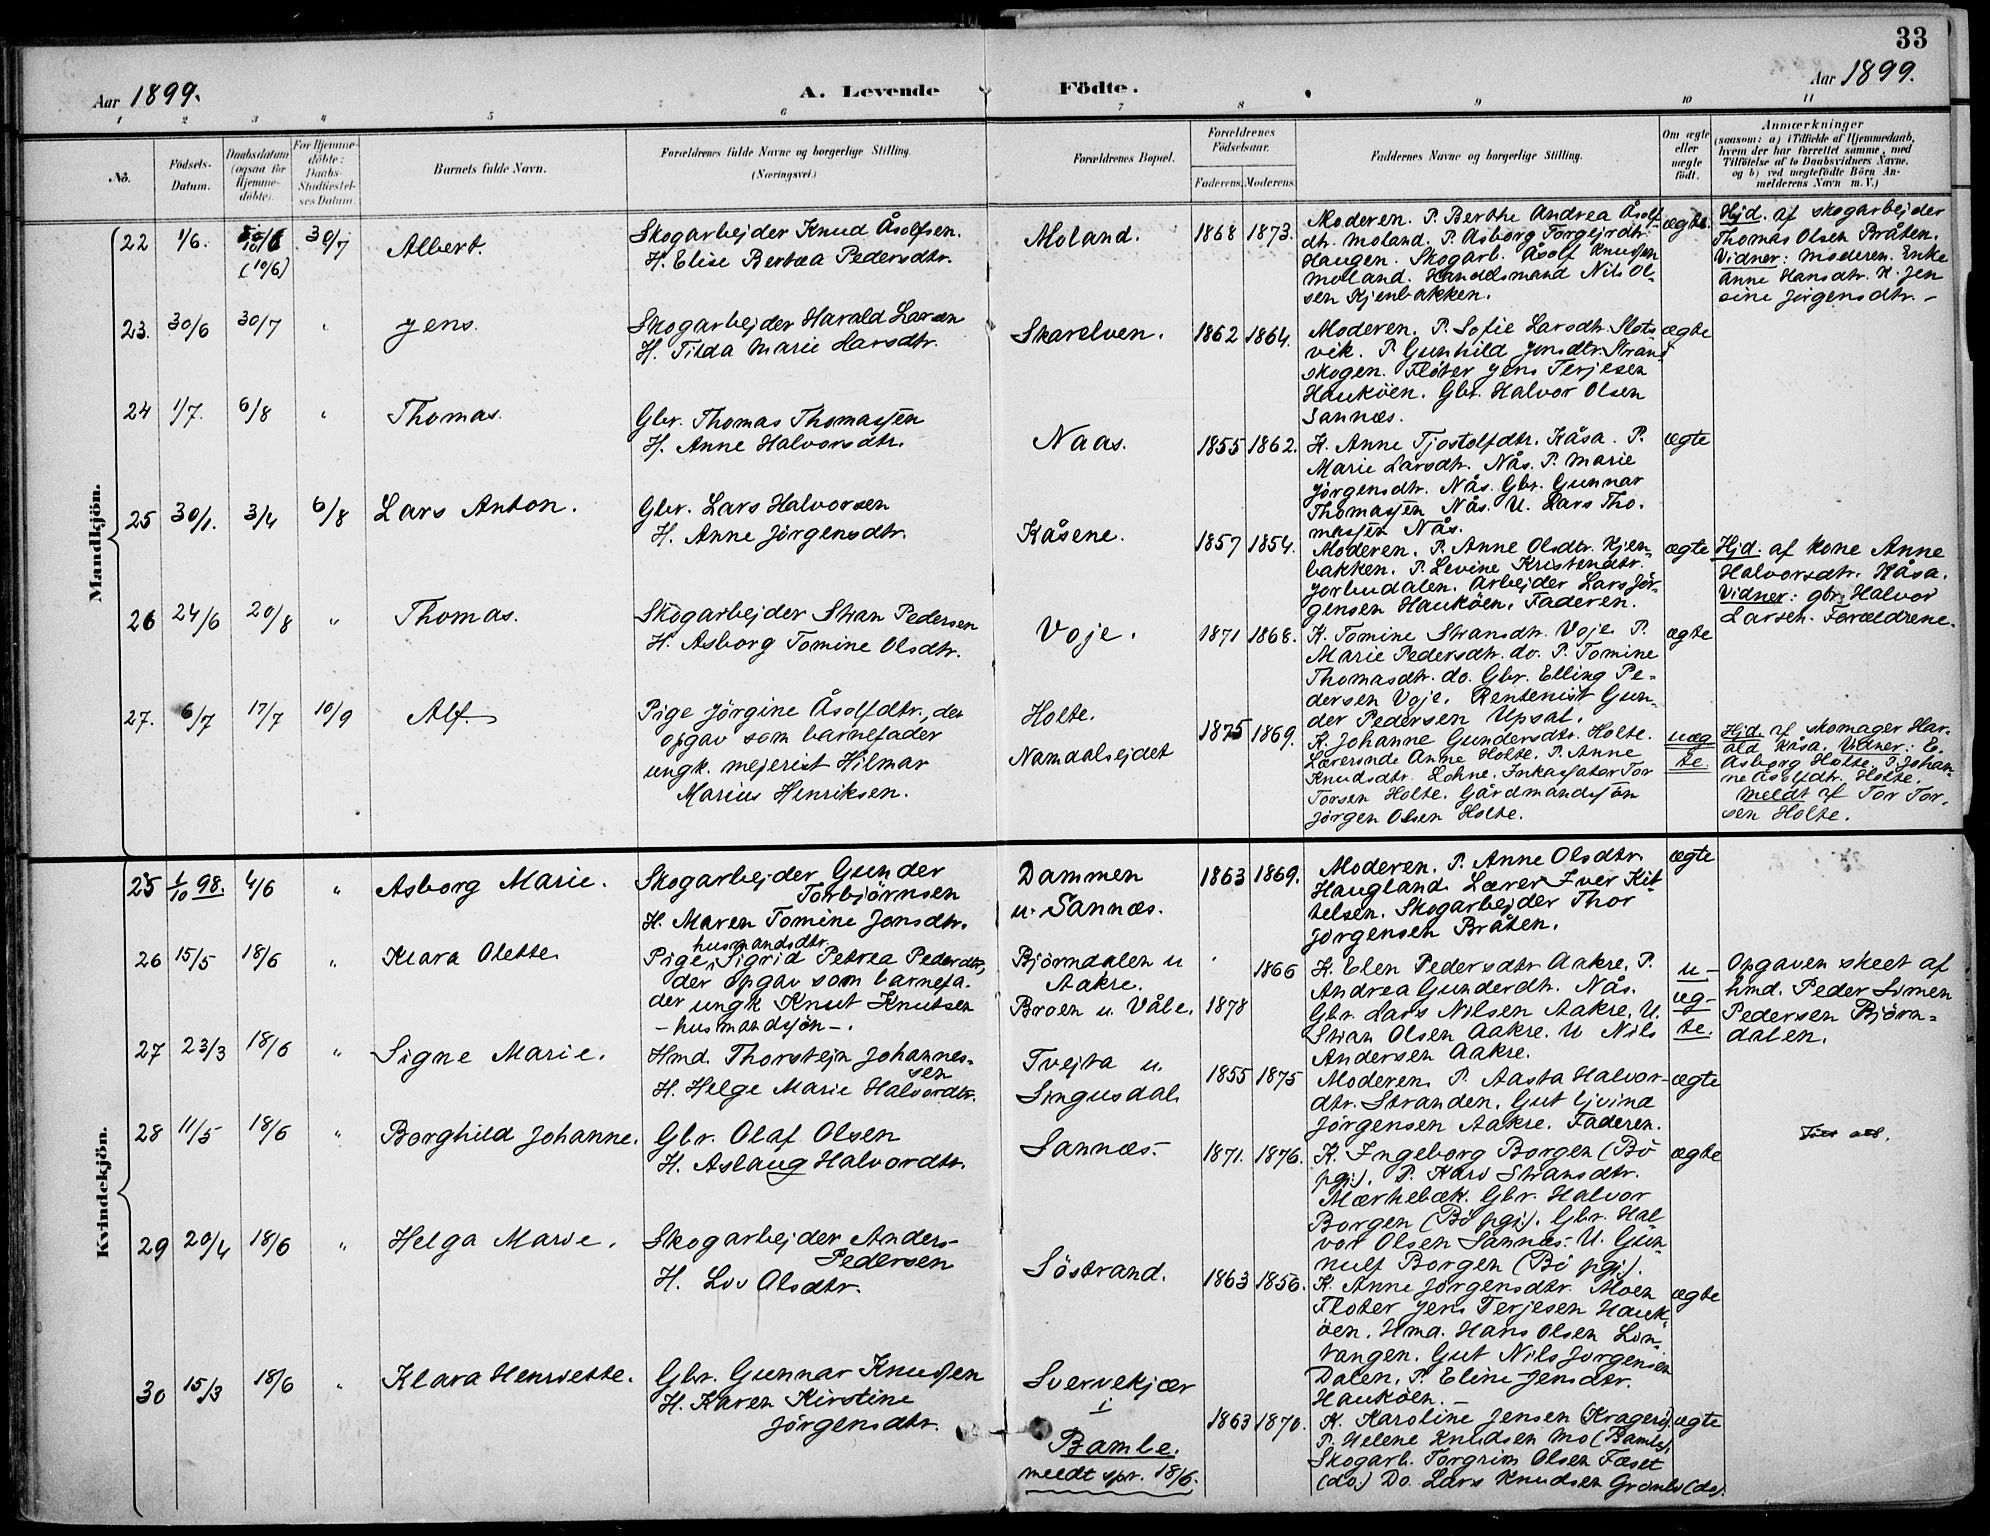 33
Aar 1899.
A. Levende Födte.
Aar 1899.
1 2 3 4 5 6 7 8 9 10 11
No.
Födsels-
Datum.
Daabsdatum
(ogsaa for
Hjemme-
döbte).
For Hjemme-
döbte:
Daabs-
Stadfæstel-
ses Datum.
Barnets fulde Navn.
Forældrenes fulde Navne og borgerlige Stilling.
(Næringsvei.)
Forældrenes Bopæl.
Forældrenes
Födselsaar.
Faderens. Moderens.
Faddernes Navne og borgerlige Stilling.
Om ægte
eller
uægte
födt.
Anmærkninger
(saasom: a) i Tilfælde af Hjemmedaab,
hvem der har forrettet samme, med
Tilföielse af to Daabsvidners Navne.
og b) ved uægtefödte Börn An-
melderens Navn m. V.)
Mandkjön.
22 1/6. (10/6) 30/7 Albert.
Skogarbejder Knud Åsolfsen.
H. Elise Bertea Pedersdtr.
Moland. 1868 1873.
Moderen. P. Berthe Andrea Åsolf-
dtr. Moland. P. Asborg Torgejrdtr.
Haugen. Skogarb. Åsolf Knudsen
Moland. Handelsmand Nils Ol-
sen Kjenbakken.
ægte.
Hjd. af skogarbejder
Thomas Olsen Bråten.
Vidner: Moderen. Enke
Anne Hansdtr. H. Jen
sine Jørgensdtr. -
23. 30/6 30/7 " Jens.
Skogarbejder Harald Larsen
H. Tilda Marie Hansdtr.
Skarelven. 1862 1864.
Moderen. P. Sofie Larsdtr. Slots
vik. P. Gunhild Jonsdtr. Strand
skogen. Fløter Jens Terjesen
Hauköen. Gbr. Halvor Olsen
Sannæs.
ægte
24 1/7. 6/8 " Thomas.
Gbr. Thomas Thomassen
H. Anne Halvorsdtr.
Naas. 1855 1862.
K. Anne Tjostolfdtr. Kåsa. P.
Marie Larsdtr. Nås. P. Marie
Jørgensdtr. Nås. Gbr. Gunnar
Thomassen Nås. U. Lars Tho-
massen Nås.
ægte
25 30/1. 3/4 6/8 Lars Anton.
Gbr. Lars Halvorsen
H. Anne Jørgensdtr.
Kåsene. 1857 1854.
Moderen. P. Anne Olsdtr. Kjen-
bakken. P. Levine Kristendtr.
Jorbudalen. Arbejder Lars Jör-
gensen Hauköen. Faderen.
ægte
Hjd. af kone Anne
Halvorsdtr. Kåsa.
Vidner: gbr. Halvor
Larsen. Forældrene.
26 24/6 20/8 " Thomas.
Skogarbejder Stian Pedersen
H. Asborg Tomine Olsdtr.
Voje. 1871 1868.
K. Tomine Stiansdtr. Voje. P.
Marie Pedersdtr. do. P. Tomine
Thomasdtr. do. Gbr. Elling Pe-
dersen Voje. Rentenist Gun-
der Pedersen Upsal.
ægte
27. 6/7 17/7 10/9 Alf.
Pige Jörgine Åsolfdtr., der
opgav som barnefader
ungk. mejerist Hilmar
Marius Henriksen.
Holte.
Namdalsejdet
1875 1869.
K. Johanne Gundersdtr. Holte.
Lærerinde Anne Holte. P. Anne
Knudsdtr. Lohne. Inkassator Tor
Torsen Holte. Gårdmandssön
Jörgen Olsen Holte.
uæg
te.
Hjd. af skomager Har-
ald Kåsa. Vidner: E.
Asborg Holte. P. Johan-
ne Åsolfdtr. Holte.
Meldt af Tor Tor-
sen Holte.
Kvindekjön.
25 1/10 98. 4/6 " Asborg Marie.
Skogarbejder Gunder
Torbjörnsen
H. Maren Tomine Jonsdtr.
Dammen
u. Sannæs.
1863 1869.
Moderen. P. Anne Olsdtr.
Haugland. Lærer Iver Kit-
telsen. Skogarbejder Thor
Jørgensen Bråten.
ægte
26 15/5 18/6 " Klara Olette
husmandsdtr.
Pige, Sigrid Petrea Pedersdtr,
der opgav som barnefa-
der ungk. Knut Knutsen
- husmandsön -.
Björndalen u
Aakre.
Broen u. Våle.
1878 1866
K. Elen Pedersdtr Aakre. P.
Andrea Gunderdtr. Nås.
Gbr. Lars Nilsen Aakre. U.
Stian Olsen Aakre. U Nils
Andersen Aakre.
u-
æg-
te.
Opgaven skeet af
hmd. Peder Simen
Pedersen Björn-
dalen.
27 23/3 18/6 " Signe Marie.
Hmd. Thorstejn Johannes-
sen
H. Helge Marie Halvordtr.
Tvejta u.
Singusdal
1855 1875
Moderen. P. Aasta Halvor-
dtr. Stranden. Gut Ejvind
Jörgensen Aakre. Faderen.
ægte
28 11/5 18/6 " Borghild Johanne.
Gbr. Olaf Olsen
H. Aslaug Halvordtr.
Sannæs. 1871. 1876.
K. Ingeborg Borgen (Bö
pgj.). P. Kari Stiansdtr.
Mærkebæk. Gbr. Halvor
Borgen (Bö pgj.). Gbr. Hal-
vor Olsen Sannæs. U. Gun-
nulf Borgen (Bö pgj).
ægte
29 20/4 18/6 " Helga Marie.
Skogarbejder Anders
Pedersen
H. Liv Olsdtr.
Söstrand. 1863 1856.
K. Anne Jörgensdtr. Moen
Floter Jens Terjesen Hauk-
öen. Hmd. Hans Olsen Lon-
tangen. Gut Nils Jorgensen
Dalen. P. Eline Jensdtr.
Hauköen. -
ægte
30 15/3 18/6 " Klara Henriette.
Gbr. Gunnar Knudsen
H. Karen Kirstine
Jörgensdtr.
Svenekjær
i
Bamle.
meldt spr. 18/6.
1863 1870.
K. Karoline Jensen (Kragerö).
P. Helene Knudsen Mo (Bamle).
Skogarb. Torgrim Olsen Fæset
(do) Do. Lars Knudsen Gromli (do).
ægte